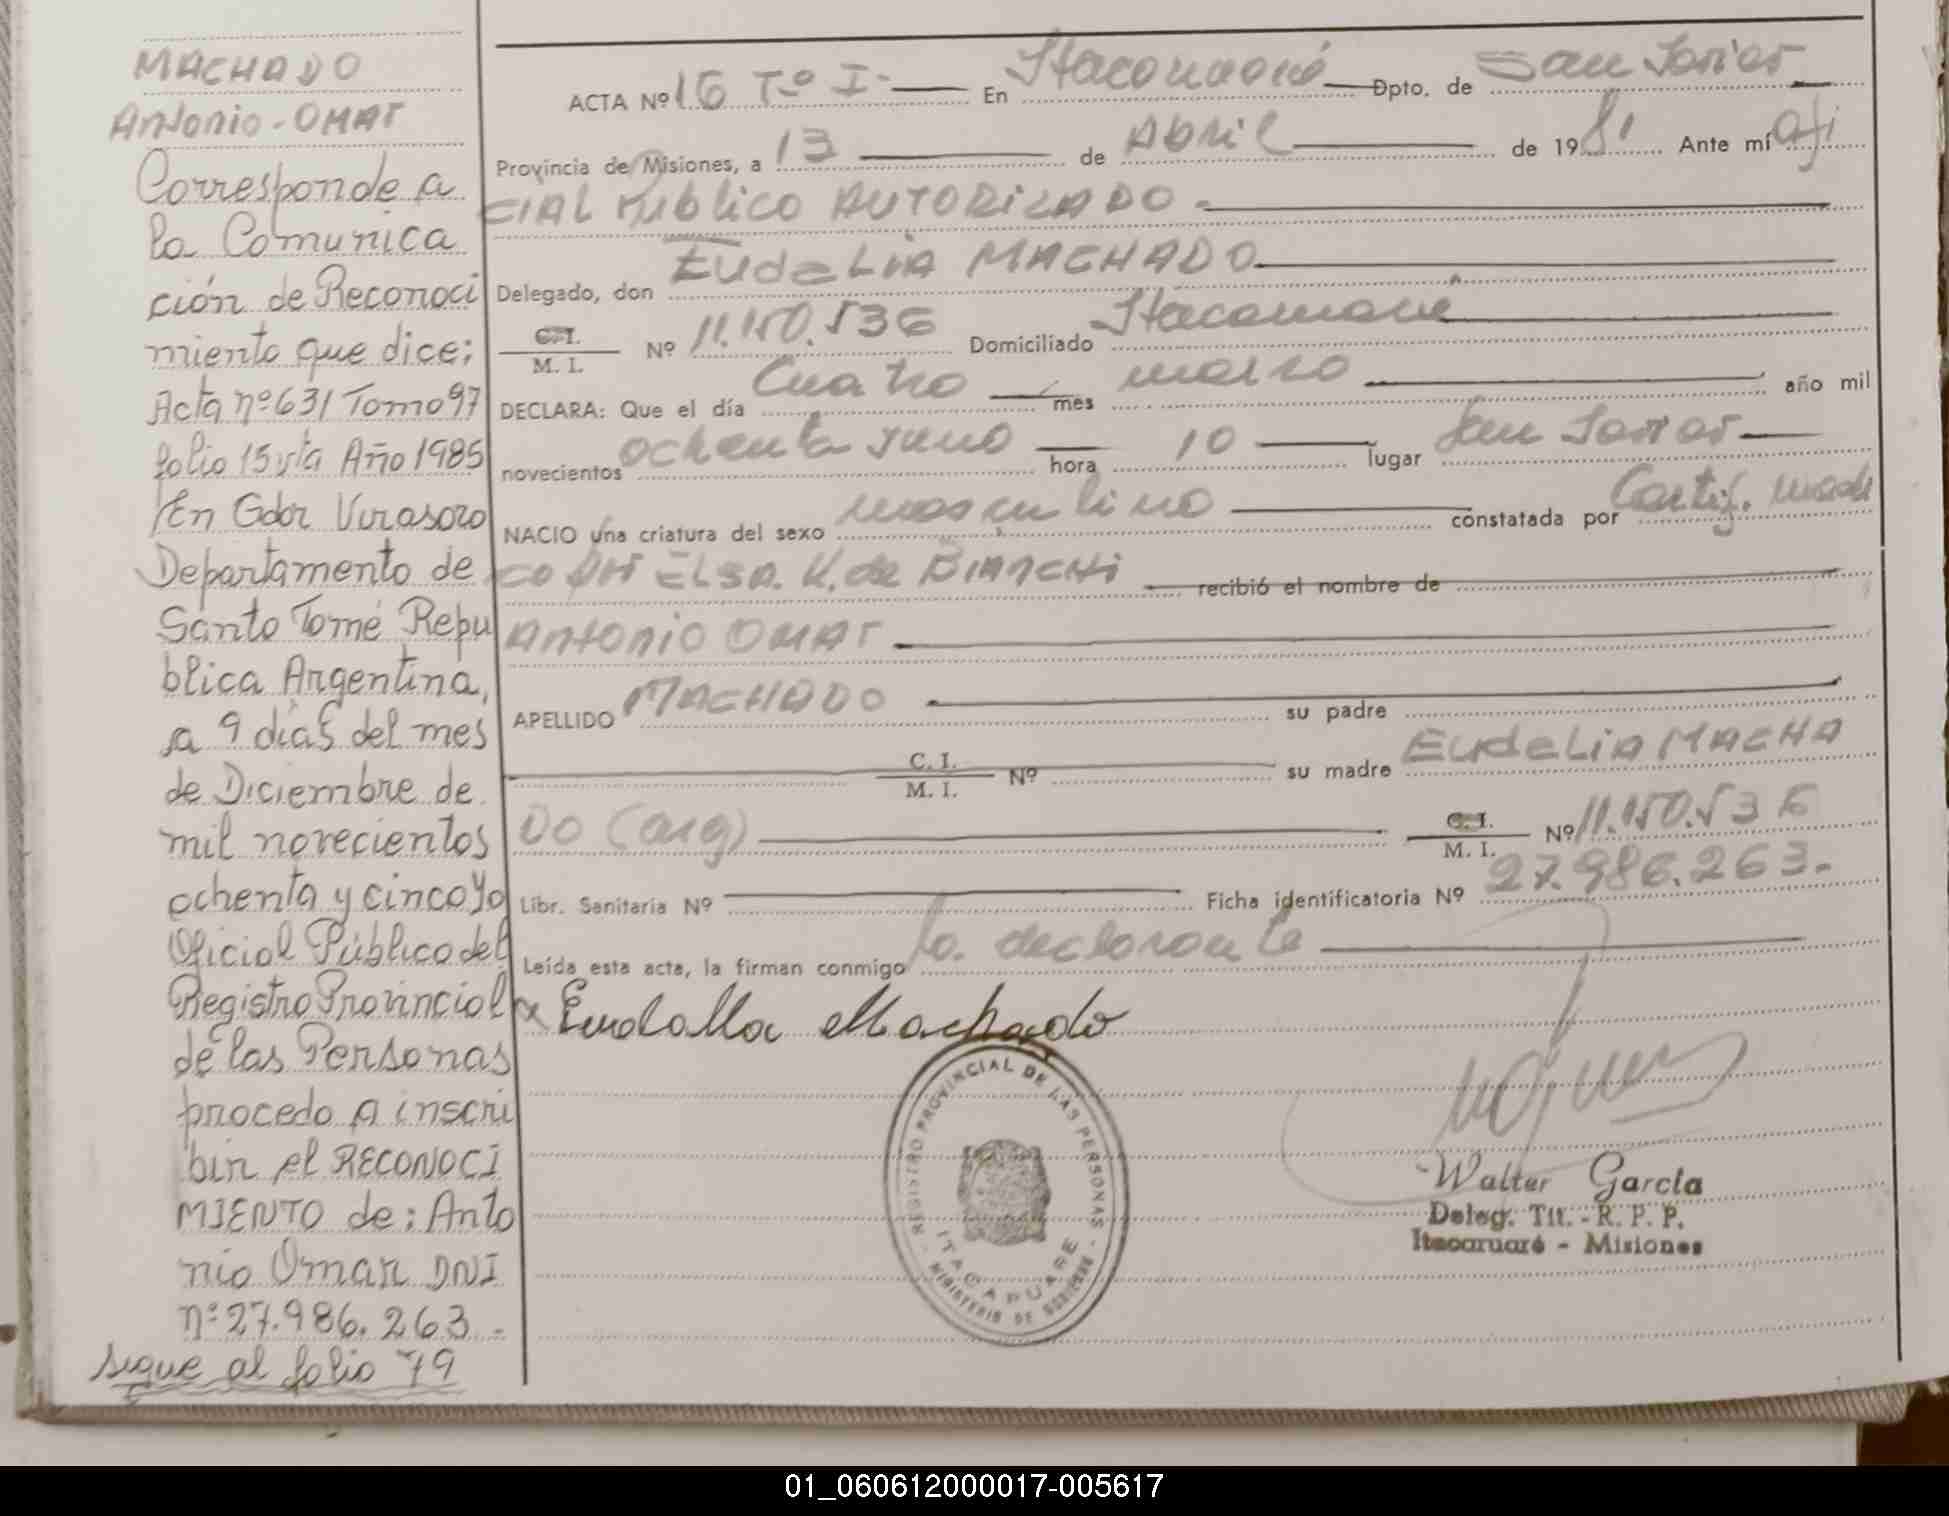 MACHADO
Antonio - OMAR
Corresponde a
la Comunica
ción de Reconoci
miento que dice;
Acta nº 631 Tomo 97
folio 15 vta Año 1985
En Gdor Virasoro
Departamento de
Santo Tomé Repu
blica Argentina,
a 9 días del mes
de Diciembre de
mil novecientos
ochenta y cinco Yo
Oficial Público del
Registro Provincial
de las Personas
procedo a inscri
bir el RECONOCI
MIENTO de: Anto
nio Omar DNI
nº 27.986.263.-
sigue al folio 79
ACTA Nº 16 Tº I - En Itacaruaré Dpto. de San Javier
Provincia de Misiones, a 13 de Abril de 1981 Ante mí ofi
CIAL Público AUTORIZADO -
Delegado, don EudeLiA MACHADO
C. I. / M. I. Nº 11.150.536 Domiciliado Itacaruaré
DECLARA: Que el día Cuatro mes marzo año mil
novecientos ochenta y uno hora 10 lugar San Javier
NACIO una criatura del sexo masculino constatada por Certif. medi
co DRA ELSA. K. de BIANCHI recibió el nombre de
Antonio OMAR
APELLIDO MACHADO su padre
C. I. / M. I. Nº su madre EudeLiA MACHA
DO (arg) C. I. / M. I. Nº 11.150.536
Libr. Sanitaria Nº Ficha identificatoria Nº 27.986.263.-
Leída esta acta, la firman conmigo la declarante
x Eudelia Machado
REGISTRO PROVINCIAL DE LAS PERSONAS
ITACARUARE
- MINISTERIO DE GOBIERNO -
Walter García
Deleg. Tit. - R. P. P.
Itacaruaré - Misiones
01_060612000017-005617